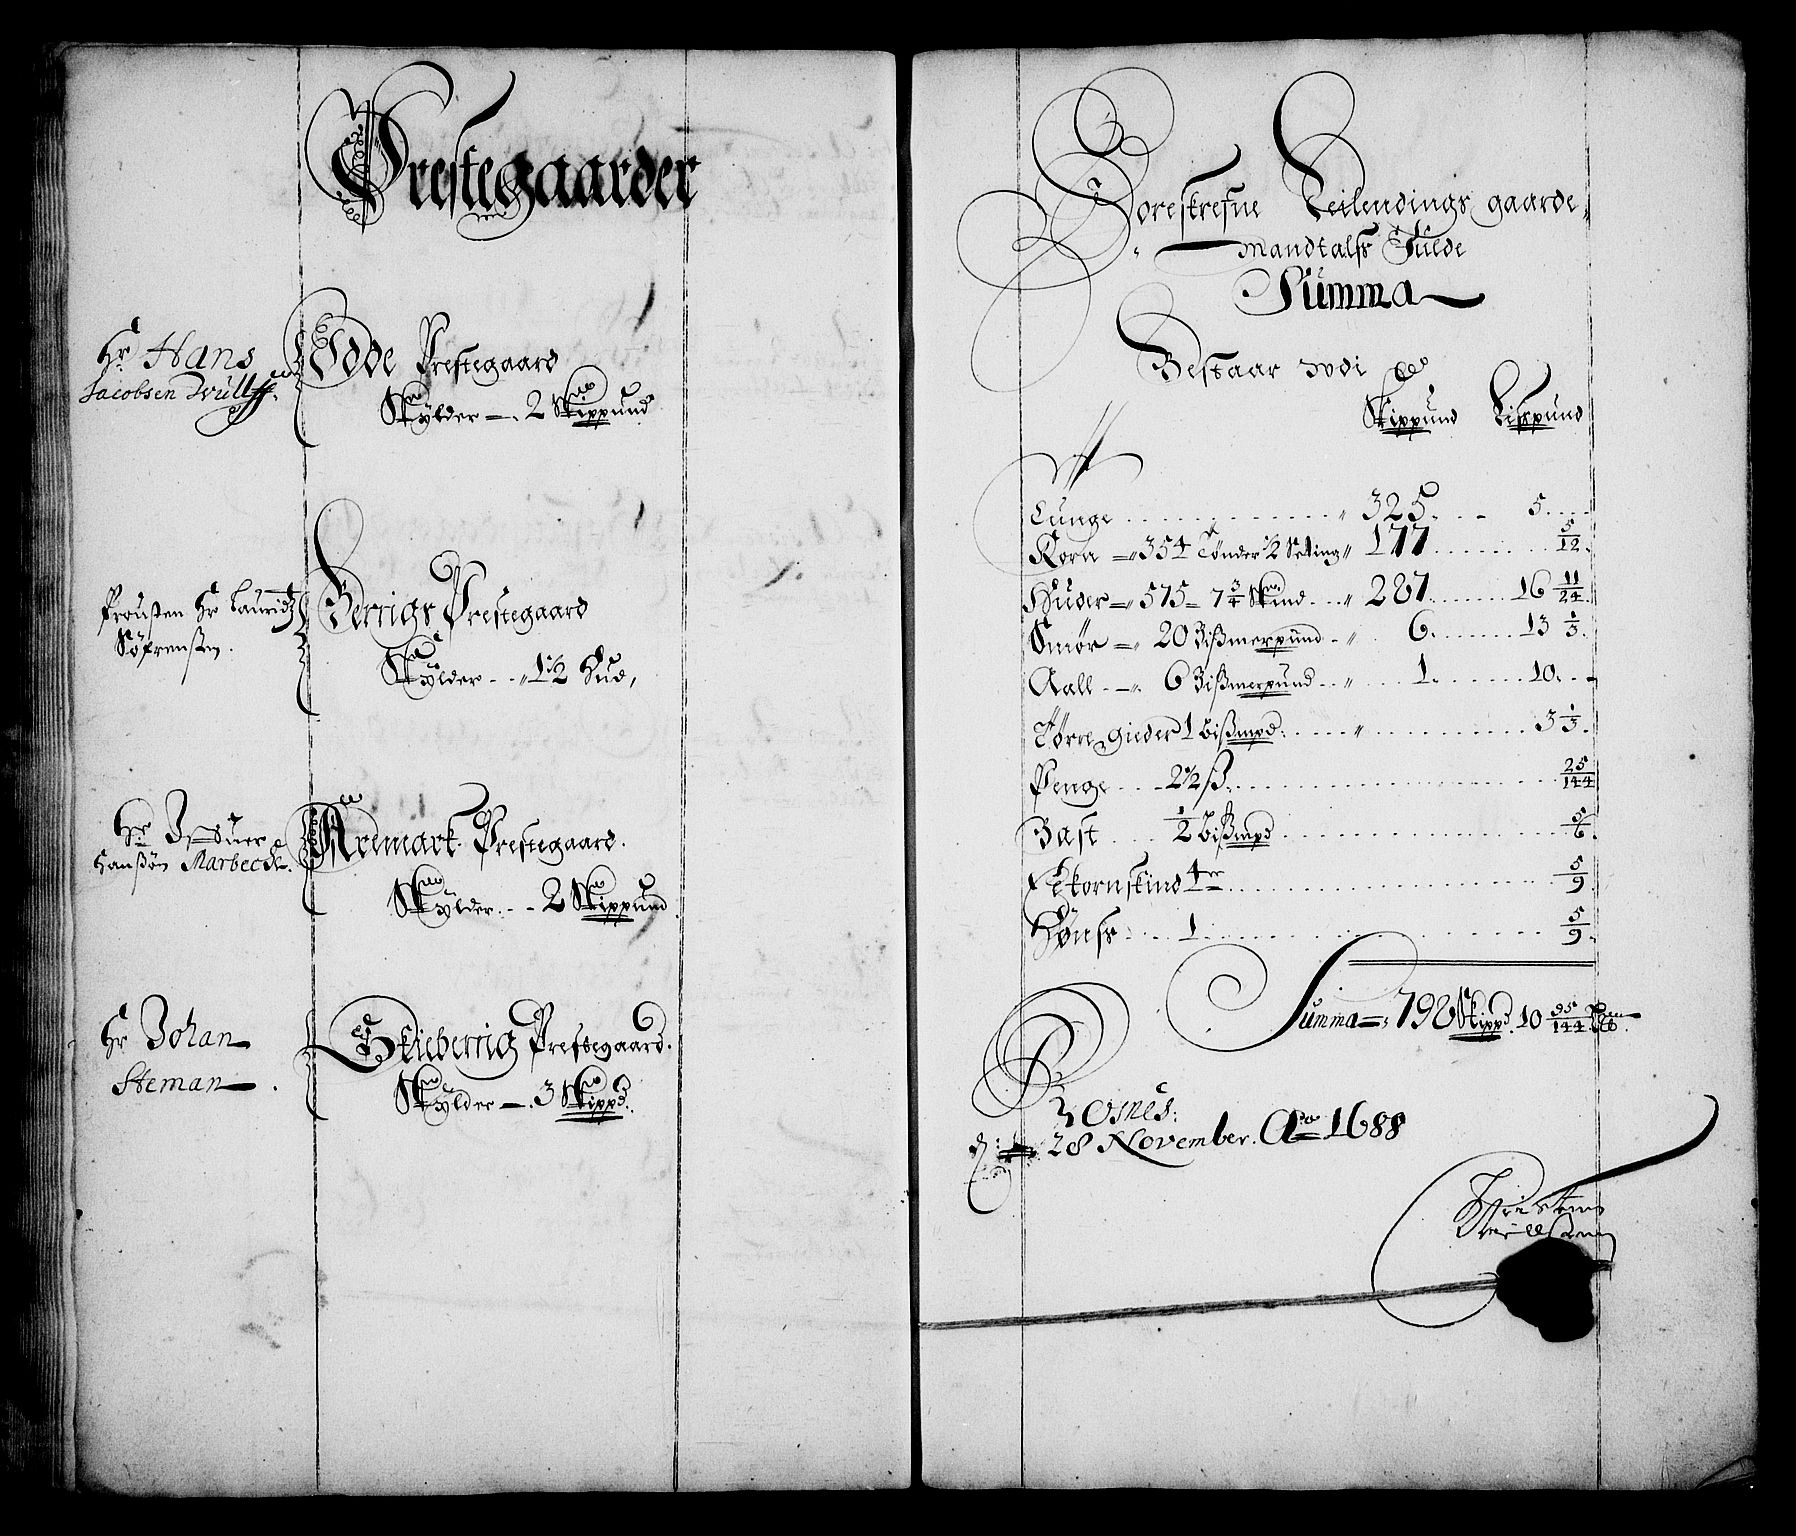 Prestegaarder
Hr Hans
Jacobsen Wulff.
Idde Prestegaard
Skylder — 2 Skippund
Prousten Hr Lauridtz
Søfrenssen.
Berrigs Prestegaard
Skylder - - 1 1/2 Hud,
Hr
Hanssøn Marbeck.
Aremark Prestegaard.
Skylder - - 2 Skippund
Hr Johan
Steman
Skieberrig Prestegaard.
Skylder — 3 Skippd.
Foreskrefne Leilendings gaarde
mandtalss fulde
Summa
Bestaar udi
Skippund Lispund
Tunge 325. 5
Korn 354 Tønder 1/2 Setting 177 5/12
Huder 575 - 7 3/4 Skind 287 16 11/24
Smør 20 Bissmerpund 6. 13 1/3
Aall 6 Bissmerpund 1. 10.
Tørre gieder 1 Bissmpd. 3 1/3
Penge 2 1/2 ß. 25/144
Bast 1/2 Bissmpd 5/6
Ekornskind 4er 5/9
Hønss 1 5/9
Summa 798 Skippd 10 95/144
Rosnes:
d: 28 November. Ao 1688